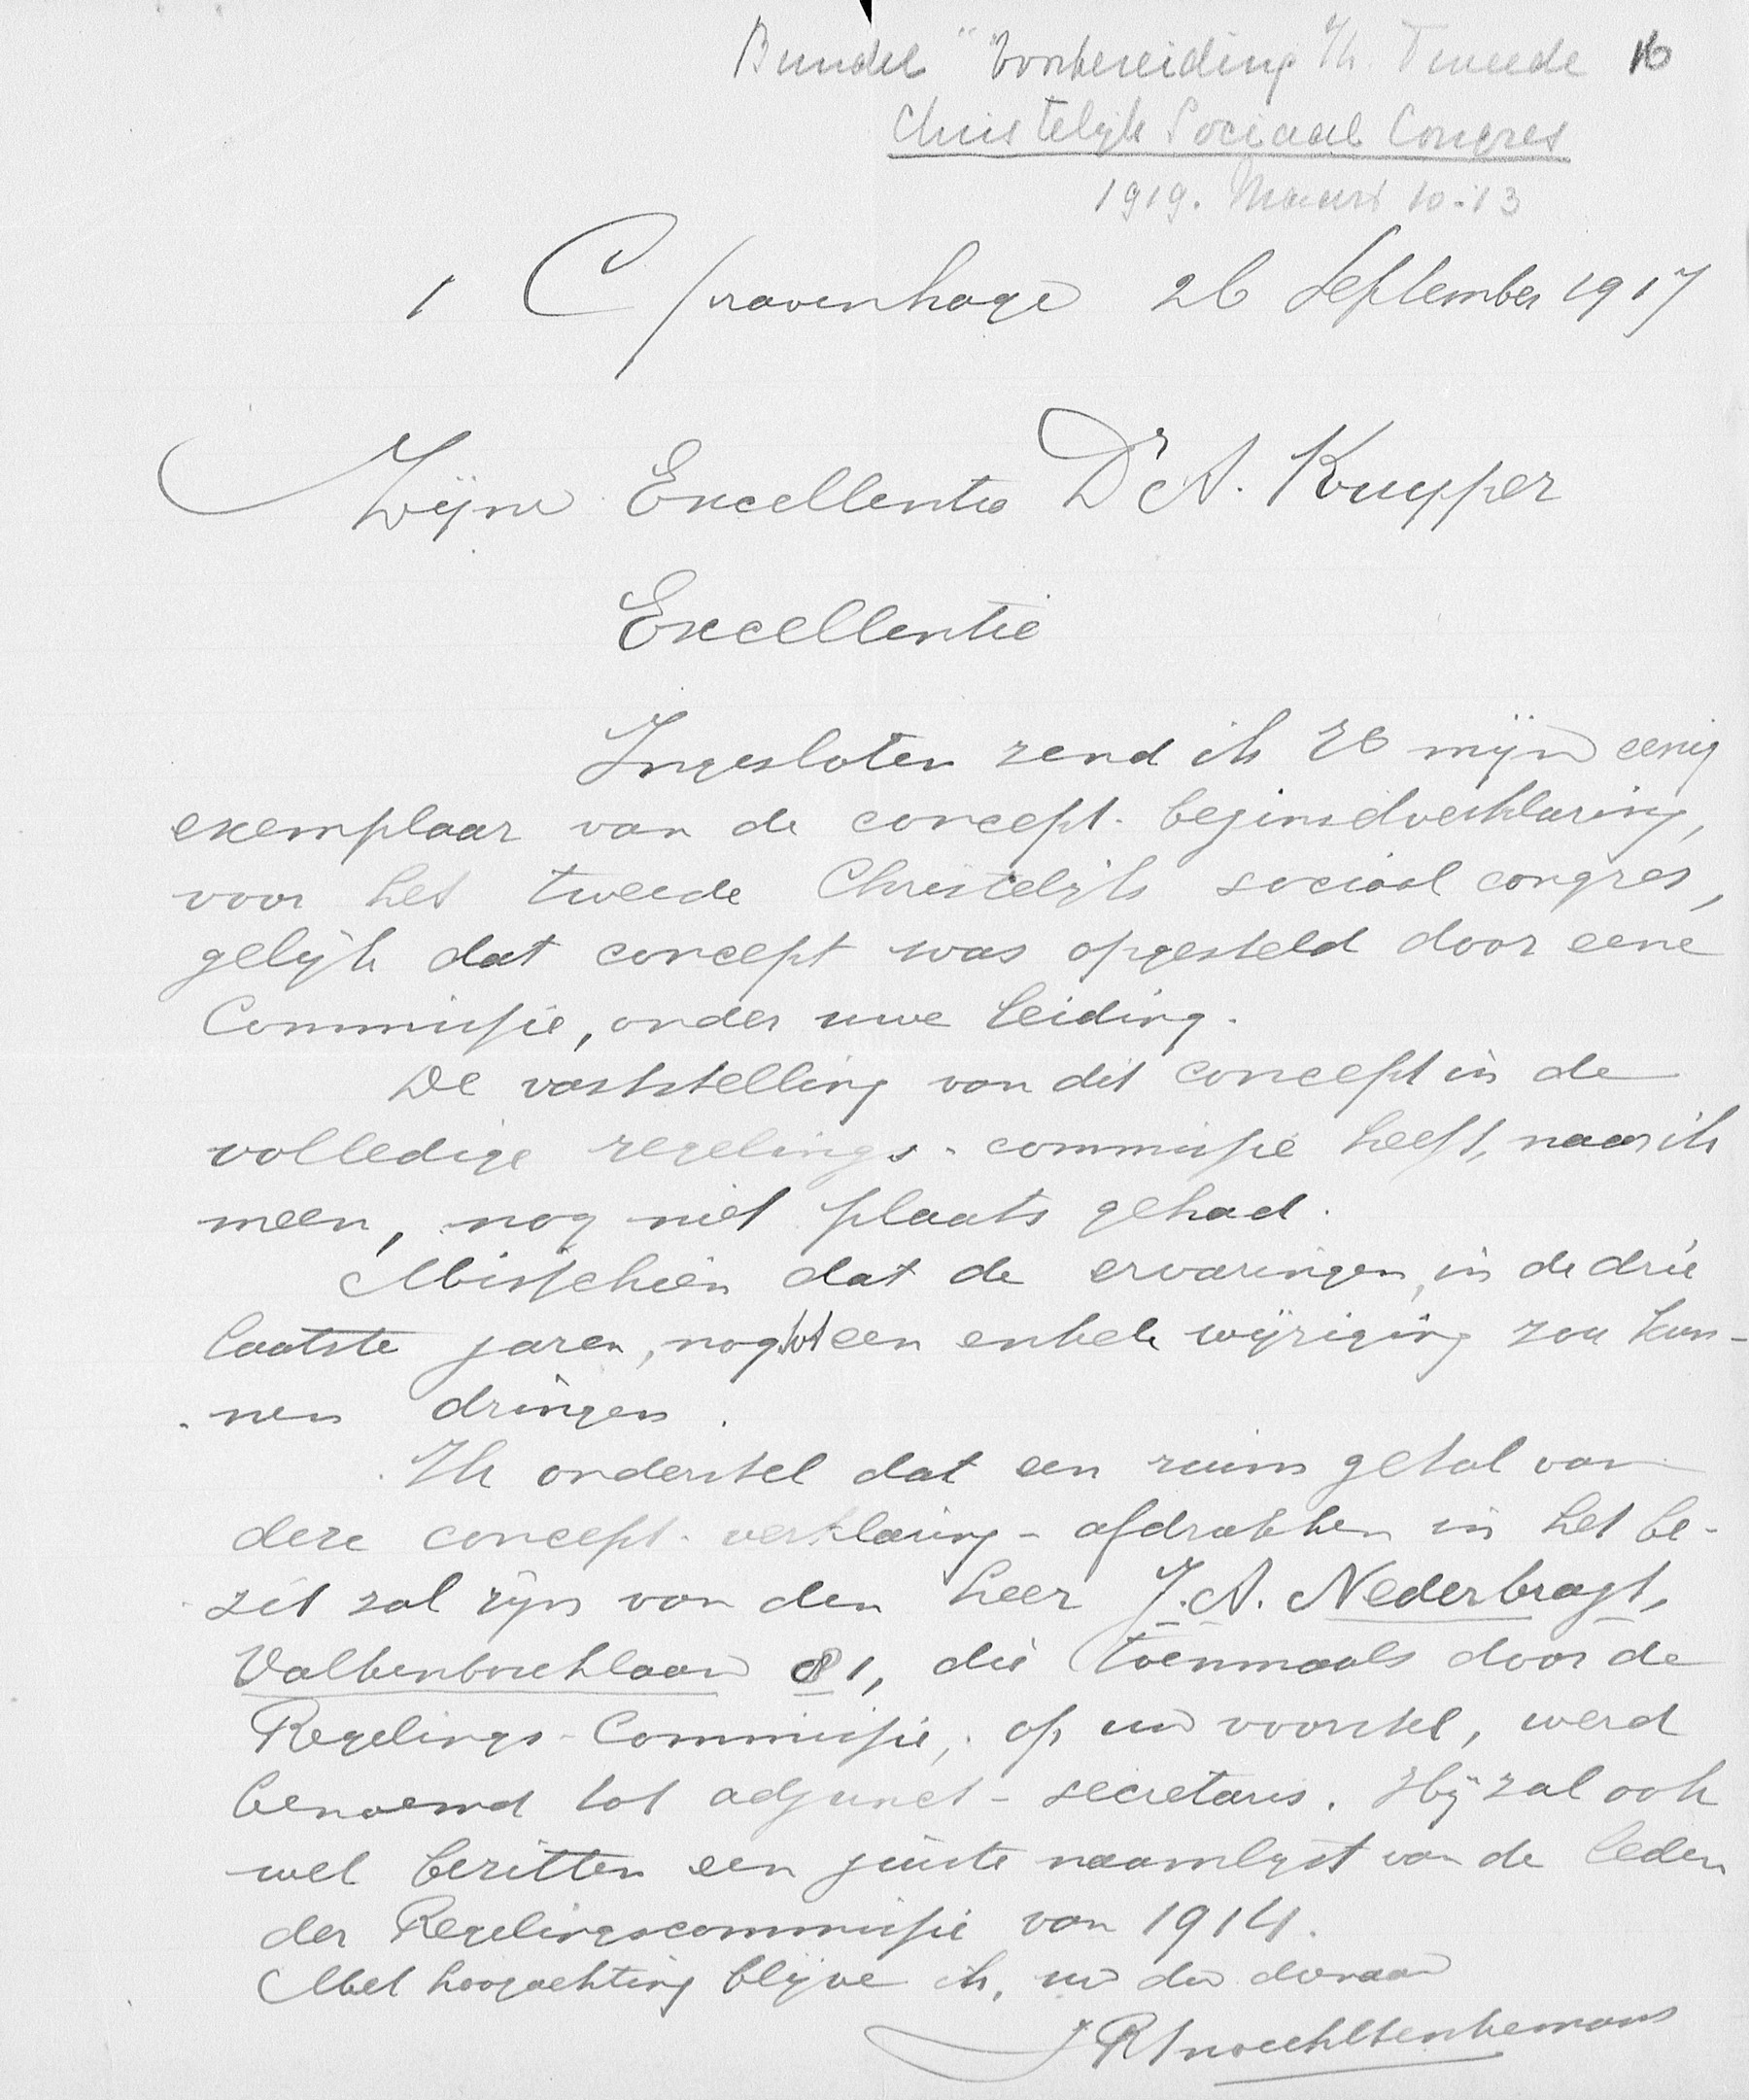 Bundel "Voorbereiding Th. Tweede 16
Christelijk Sociaal Congres
1919. Maart 10-13
's Gravenhage 26 September 1917
Zijne Excellentie Dr A. Kuyper
Excellentie
Ingesloten zend ik U mijn eenig
exemplaar van de concept-beginselverklaring,
voor het tweede Christelijk sociaal congres,
gelijk dat concept was opgesteld door eene
Commissie, onder uwe leiding.
De vaststelling van dit concept in de
volledige regelings-commissie heeft, naar ik
meen, nog niet plaats gehad.
Misschien dat de ervaringen, in de drie
laatste jaren, nog tot een enkele wijziging zou kun-
nen dringen.
Ik onderstel dat een ruim getal van
deze concept-verklaring-afdrukken in het be-
zit zal zijn van den heer J.A. Nederbragt,
Valkenboschlaan 81, die toenmaals door de
Regelings-Commissie, op uw voorstel, werd
benoemd tot adjunct-secretaris. Hij zal ook
wel bezitten een juiste naamlijst van de leden
der Regelingscommissie van 1914.
Met hoogachting blijve ik, uw dw dienaar
J R Snoeck Henkemans